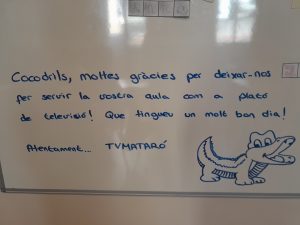 Cocodrils, moltes gràcies per deixar-nos
per servir la vostra aula com a plató
de televisió! Que tingueu un molt bon dia!
Atentament... TVMATARÓ